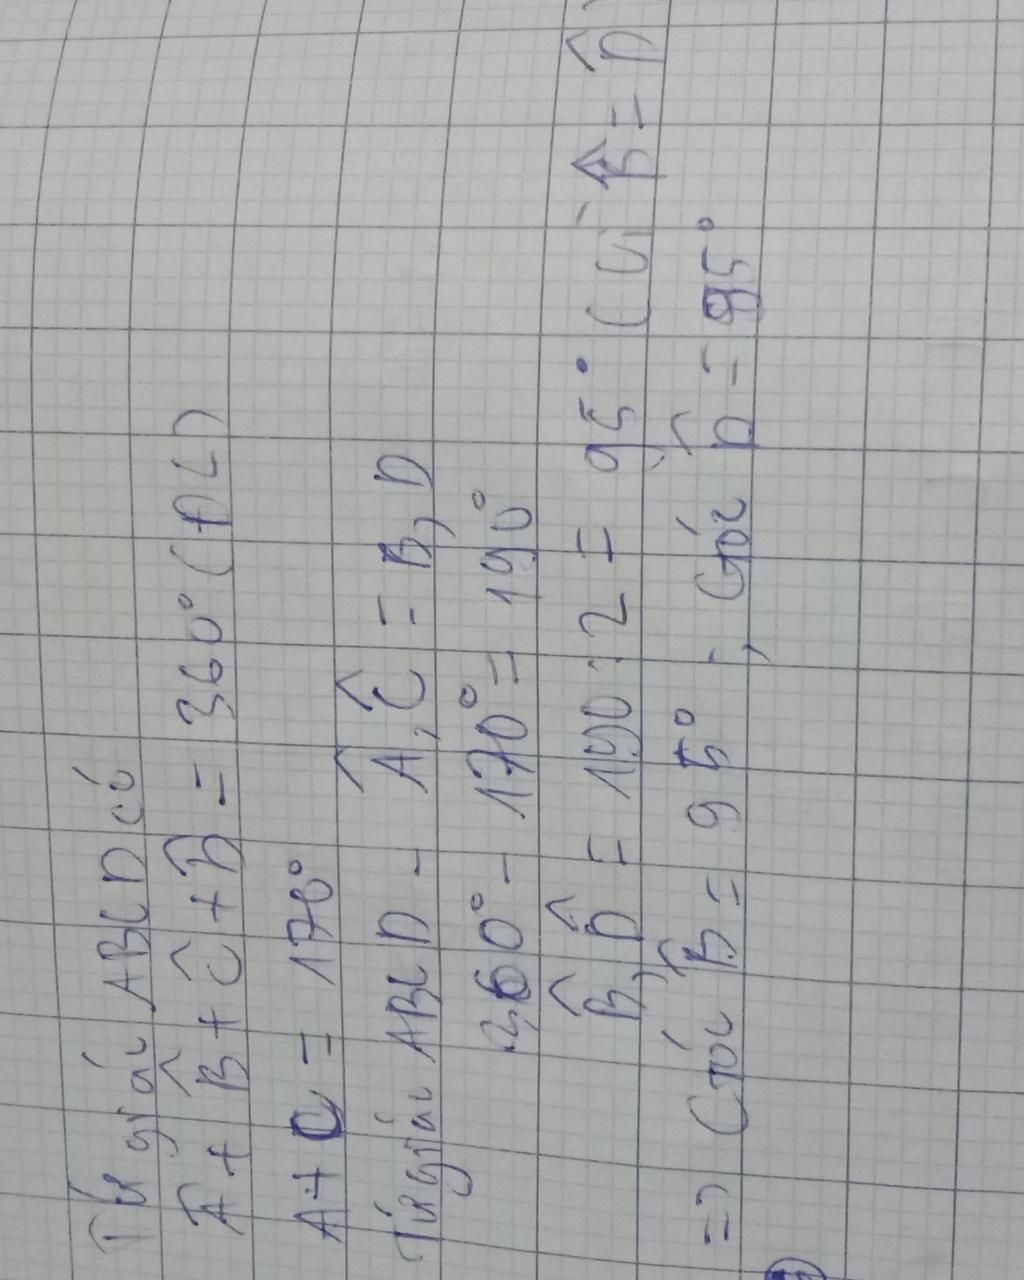 Tứ giác ABCD có
Â + B̂ + Ĉ + D̂ = 360° (ĐL)
A + C = 170°
Tứ giác ABCD - Â, Ĉ = B, D
360° - 170° = 190°
B̂, D̂ = 190 : 2 = 95° (Vì B̂ = D̂)
=> Góc B̂ = 95° ; Góc D̂ = 95°